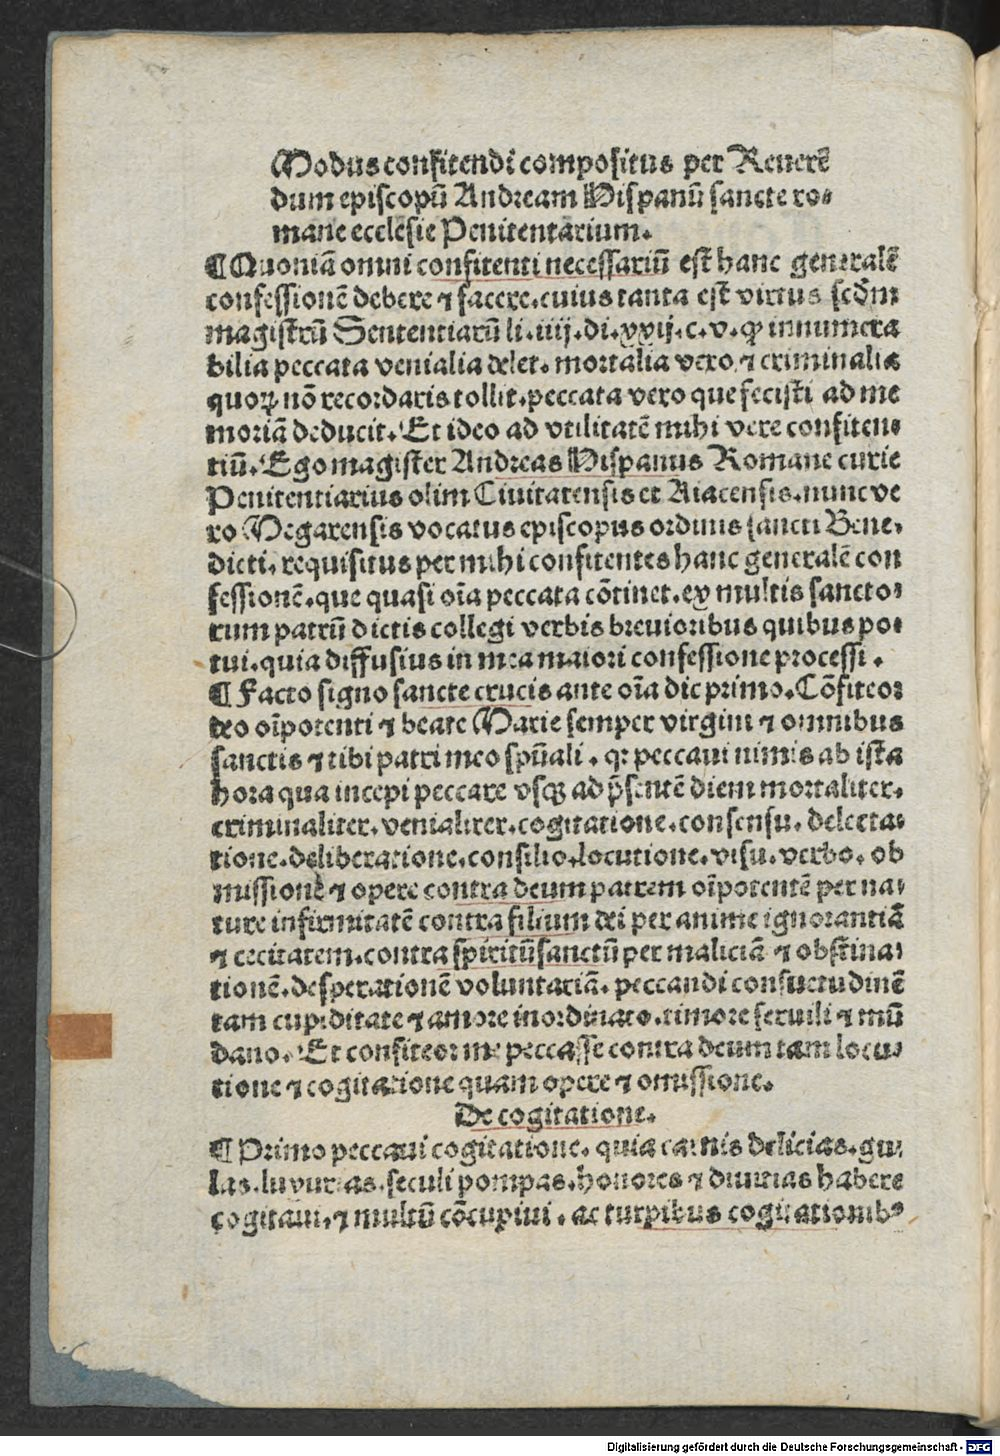 Modus confitendi compositus per Reuerē
dum episcopū Andream Hispanū sancte ro⸗
mane ecclesie Penitentarium.
¶ Quoniā omni confitenti necessariū est hanc generalē
confessionē debere ⁊ facere. cuius tanta est virtus scd̄m
magistrū Sententiarū li. iiij. di. xxij. c. v. ꝙ innumera
bilia peccata venialia delet. mortalia vero ⁊ criminalia
quoꝝ nō recordaris tollit. peccata vero que fecisti ad me
moriā deducit. Et ideo ad vtilitatē mihi vere confiten⸗
tiū. Ego magister Andreas Hispanus Romane curie
Penitentiarius olim Ciuitatensis et Aiacensis. nunc ve
ro Megarensis vocatus episcopus ordinis sancti Bene⸗
dicti. requisitus per mihi confitentes hanc generalē con
fessionē. que quasi oīa peccata cōtinet. ex multis sancto⸗
rum patrū dictis collegi verbis breuioribus quibus po⸗
tui. quia diffusius in mea maiori confessione processi.
¶ Facto signo sancte crucis ante oīa dic primo. Cōfiteor
deo oīpotenti ⁊ beate Marie semper virgini ⁊ omnibus
sanctis ⁊ tibi patri meo spūali. qꝛ peccaui nimis ab ista
hora qua incepi peccare vsqꝫ ad p̄sentē diem mortaliter.
criminaliter. venialiter. cogitatione. consensu. delecta⸗
tione. deliberatione. consilio. locutione. visu. verbo. ob
missionē ⁊ opere contra deum patrem oīpotentē per na⸗
ture infirmitatē contra filium dei per anime ignorantiā
⁊ cecitatem. contra spiritū sanctū per maliciā ⁊ obstina⸗
tionē. desperationē voluntariā. peccandi consuetudinē
tam cupiditate ⁊ amore inordinato. timore seruili ⁊ mū
dano. Et confiteor me peccasse contra deum tam locu⸗
tione ⁊ cogitatione quam opere ⁊ omissione.
De cogitatione.
¶ Primo peccaui cogitatione. quia carnis delicias. gu⸗
las. luxurias. seculi pompas. honores ⁊ diuitias habere
cogitaui. ⁊ multū cōcupiui. ac turpibus cogitationibꝰ
Digitalisierung gefördert durch die Deutsche Forschungsgemeinschaft - DFG